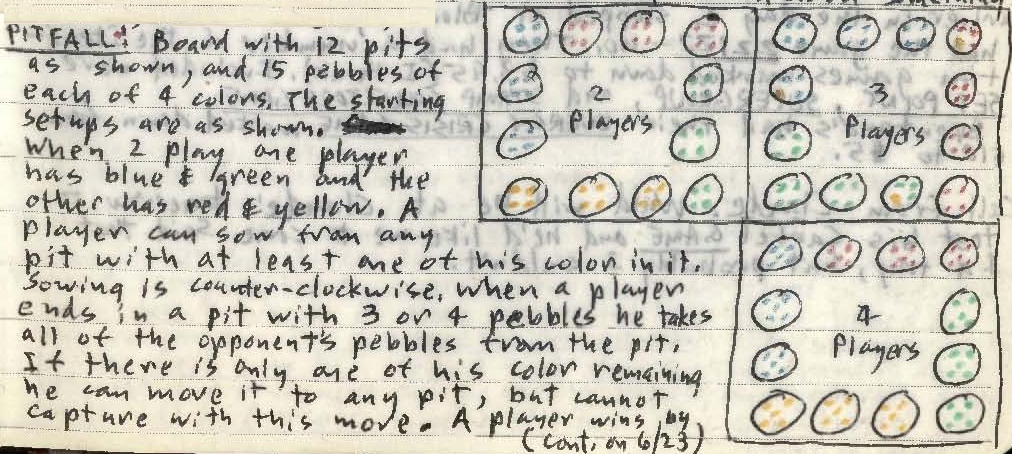 PITFALL: Board with 12 pits
as shown, and 15 pebbles of
each of 4 colors. The starting
setups are as shown.
When 2 play one player
has blue & green and the
other has red & yellow. A
player can sow from any
pit with at least one of his color in it.
Sowing is counter-clockwise. When a player
ends in a pit with 3 or 4 pebbles he takes
all of the opponent's pebbles from the pit.
If there is only one of his color remaining
he can move it to any pit, but cannot
capture with this move. A player wins by
(cont. on 6/23)
2
Players
3
Players
4
Players